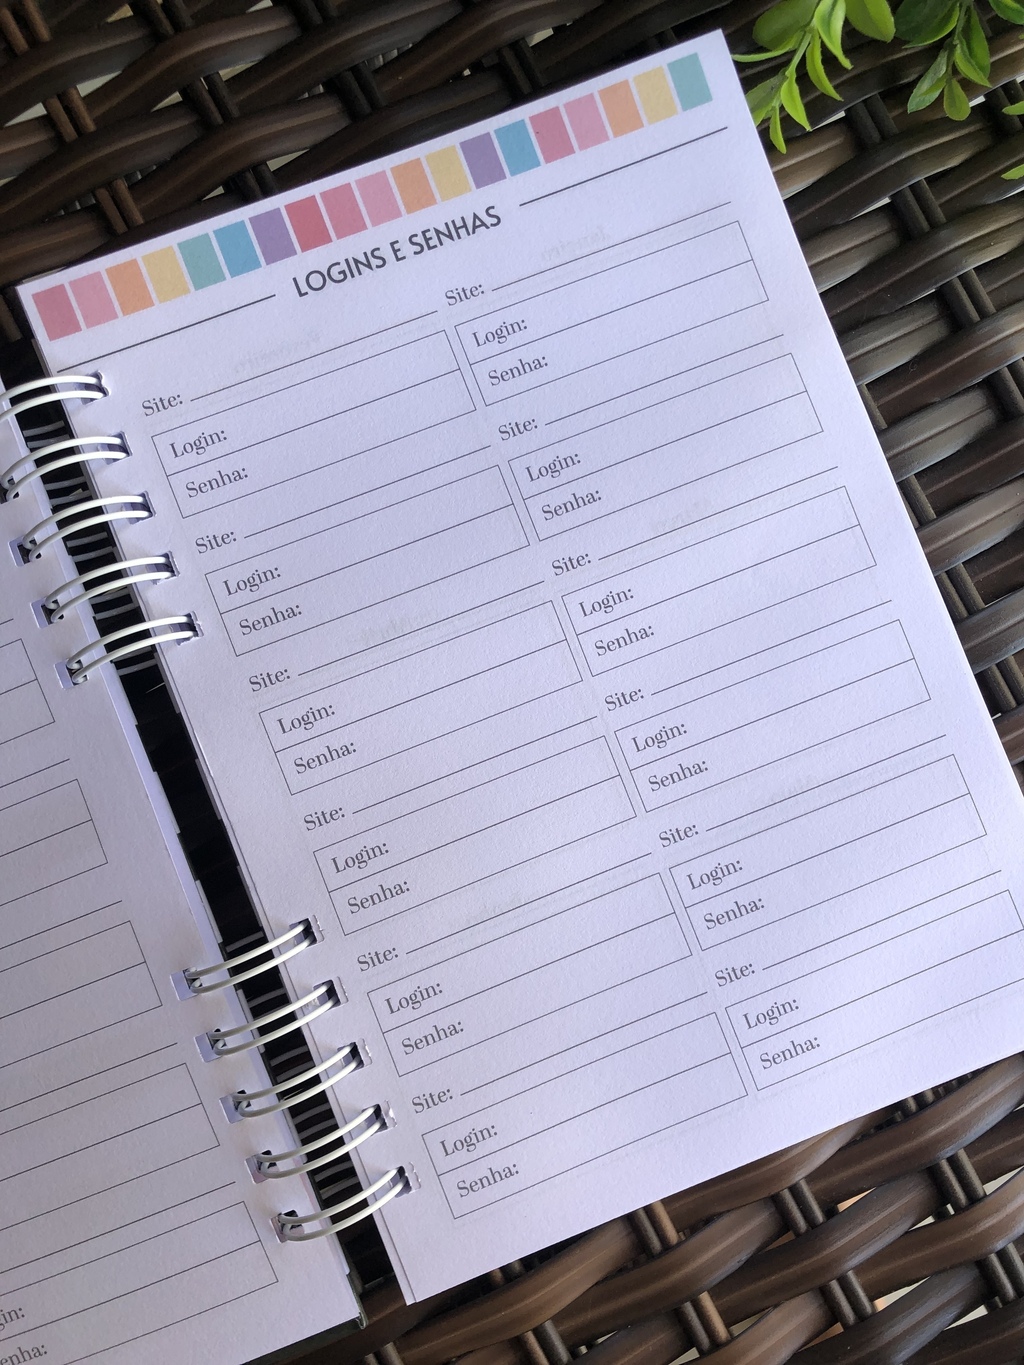 LOGINS E SENHAS
Site:
Login:
Senha:
Site:
Login:
Senha:
Site:
Login:
Senha:
Site:
Login:
Senha:
Site:
Login:
Senha:
Site:
Login:
Senha:
Site:
Login:
Senha:
Site:
Login:
Senha:
Site:
Login:
Senha:
Site:
Login:
Senha:
Site:
Login:
Senha:
Site:
Login:
Senha: